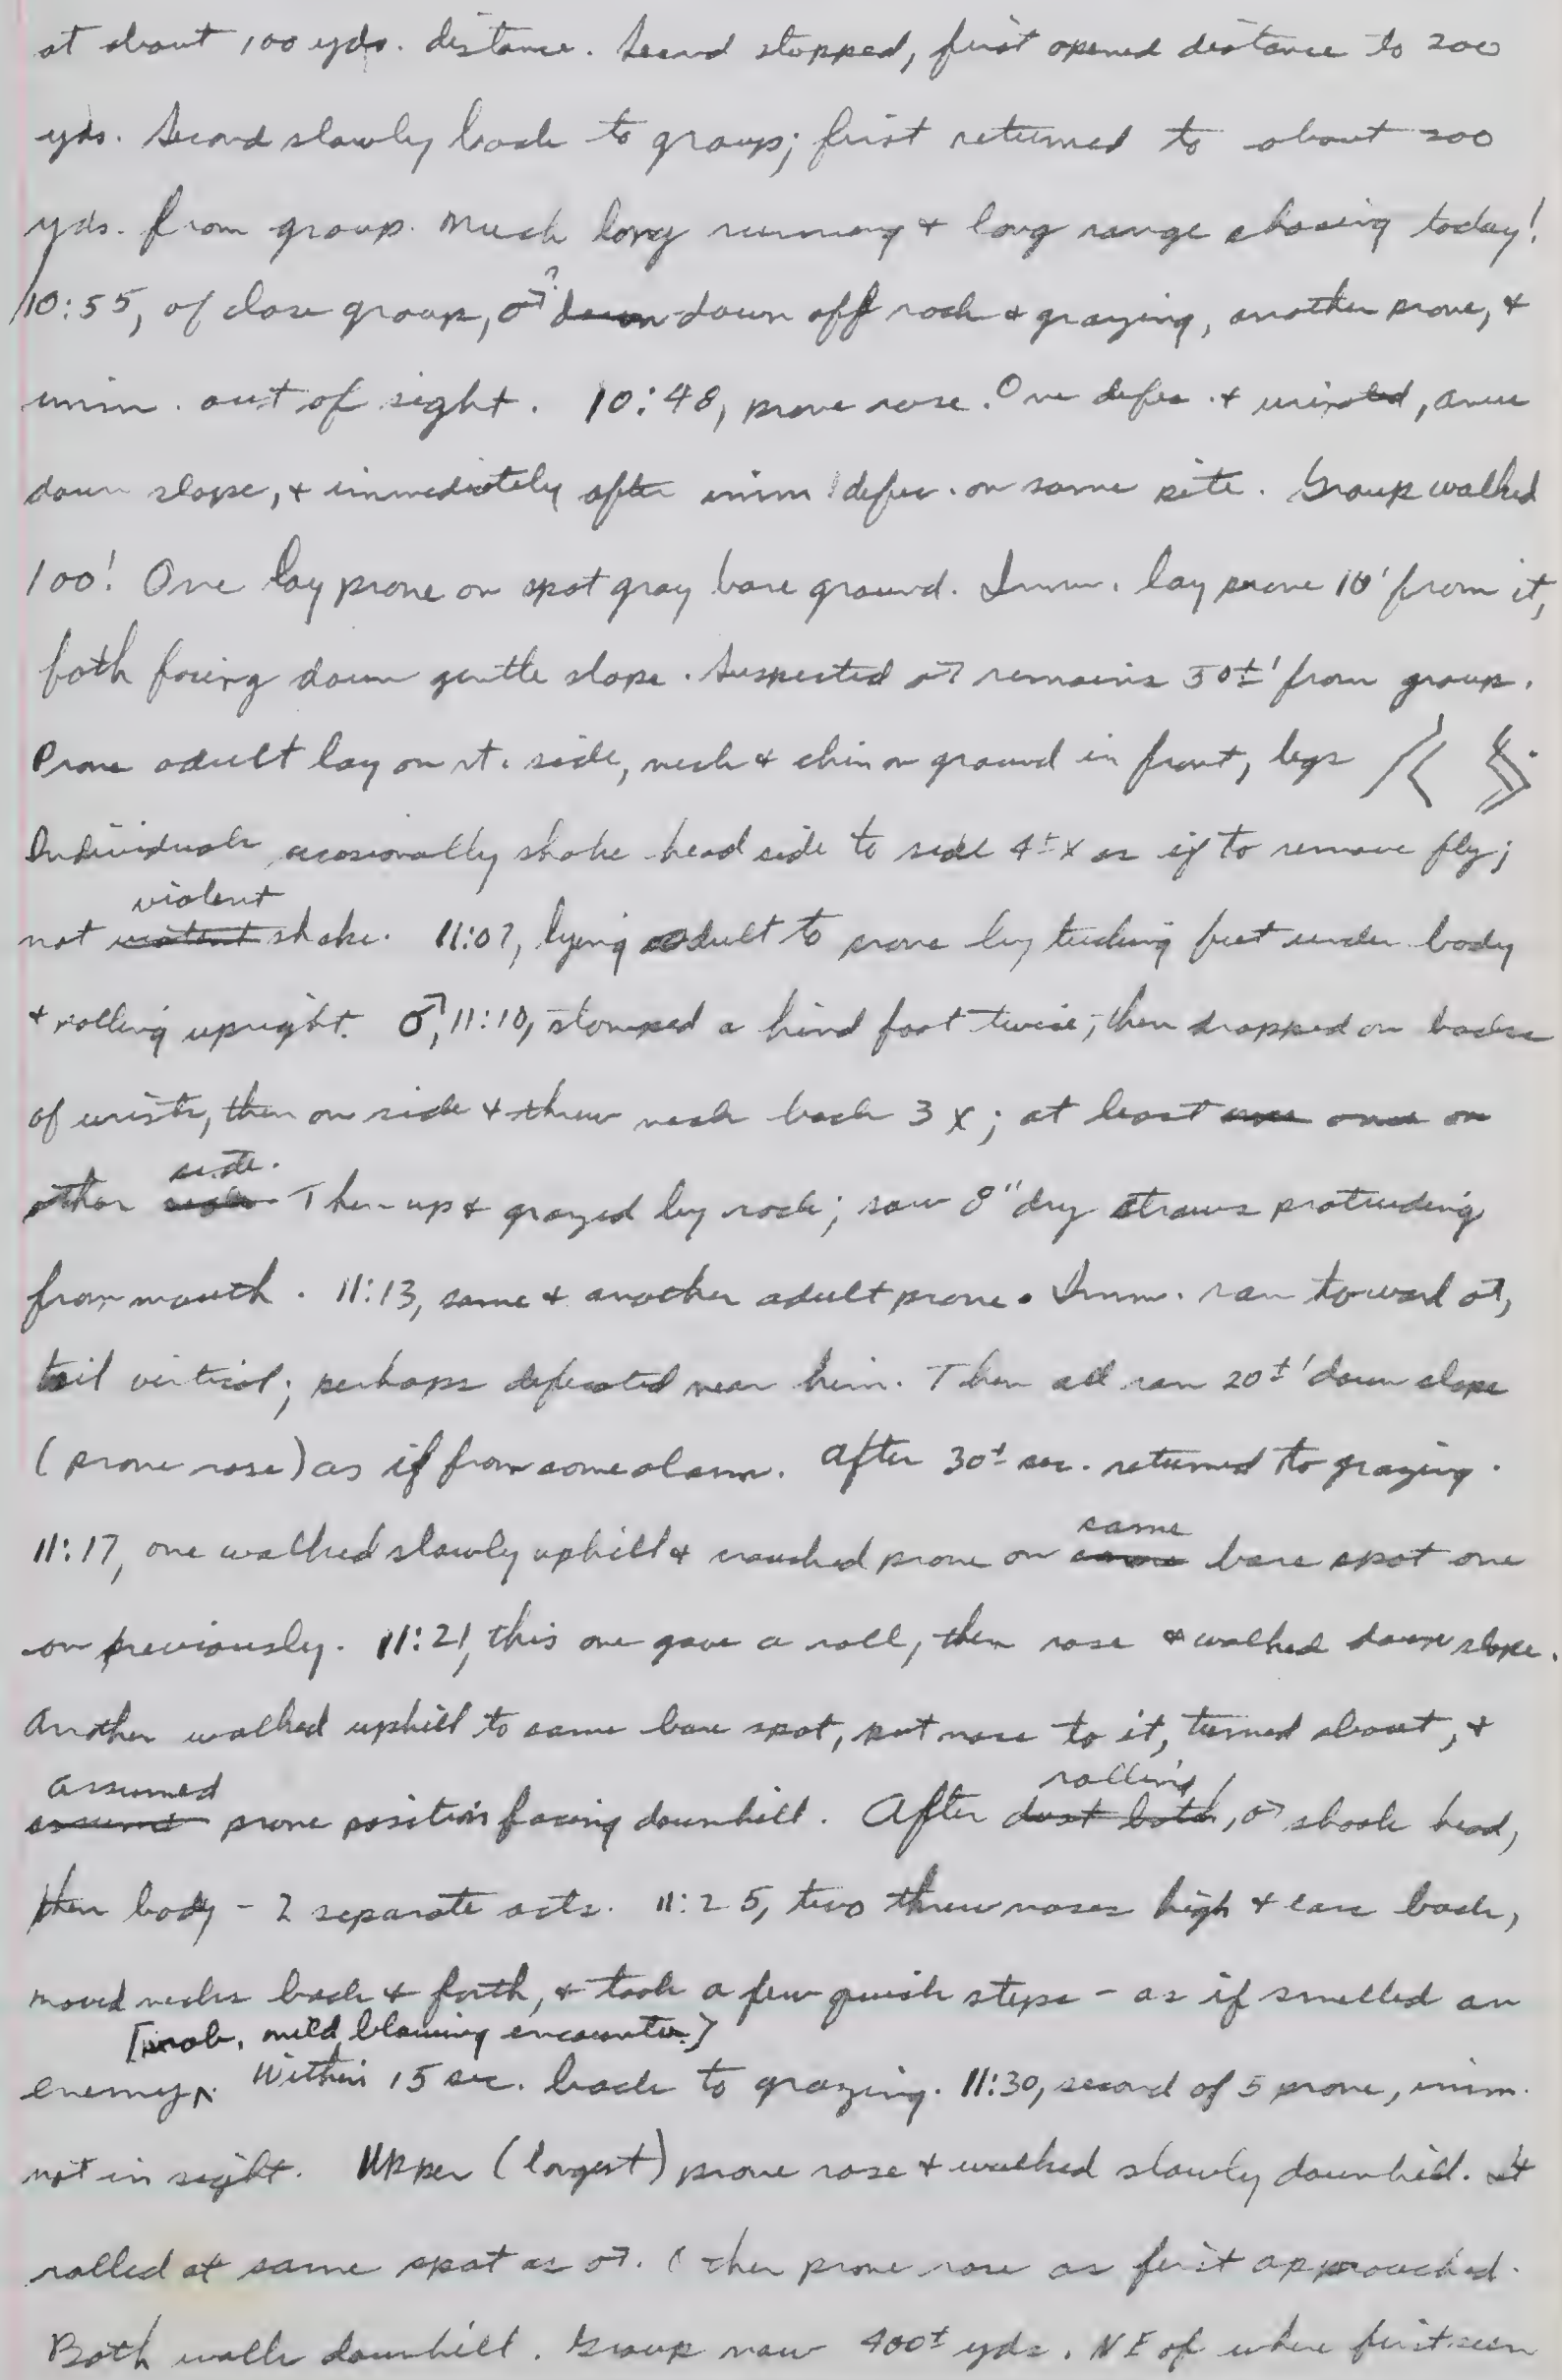 at about 100 yds. distance. Second stopped, first opened distance to 200
yds. Second slowly back to group; first returned to about 200
yds. from group. Much long running & long range chasing today!
10:55, of close group, ♂? down down off rock & grazing, another prone, &
imm. out of sight. 10:48, prone rose. One defec. & urinated,
down slope, & immediately after imm. defec. on same site. Group walked
100'. One lay prone on spot gray bare ground. Imm. lay prone 10' from it,
both facing down gentle slope. Suspected ♂ remains 50±' from group.
Prone adult lay on rt. side, neck & chin on ground in front, legs
Individuals occasionally shake head side to side 4± X as if to remove fly;
violent
not violent shake. 11:07, lying adult to prone by tucking feet under body
& rolling upright. ♂, 11:10, stomped a hind foot twice, then dropped on backs
of wrists, then on side & threw neck back 3 X; at least once on
side.
other Then up & grazed by rock; saw 8" dry straws protruding
from mouth. 11:13, same & another adult prone. Imm. ran toward ♂,
tail vertical; perhaps defecated near him. Then all ran 20±' down slope
(prone rose) as if from some alarm. After 30± sec. returned to grazing.
same
11:17, one walked slowly uphill & crouched prone on same bare spot one
on previously. 11:21, this one gave a roll, then rose & walked down slope.
Another walked uphill to same bare spot, put nose to it, turned about, &
assumed rolling
assumed prone position facing downhill. After dust bath, ♂ shook head,
then body - 2 separate acts. 11:25, two threw noses high & ears back,
moved necks back & forth, & took a few quick steps - as if smelled an
[prob. mild blaming encounter]
enemy. Within 15 sec. back to grazing. 11:30, second of 5 prone, imm.
not in sight. Upper (largest) prone rose & walked slowly downhill. It
rolled at same spot as ♂. Other prone rose as first approached.
Both walk downhill. Group now 400± yds. NE of where first seen